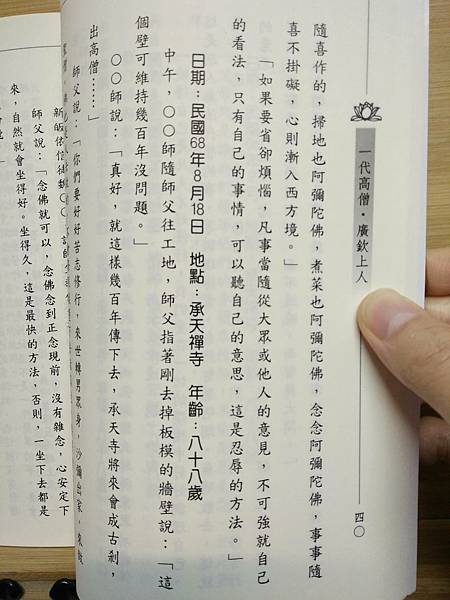 一代高僧・廣欽上人
四〇
隨喜作的，掃地也阿彌陀佛，煮菜也阿彌陀佛，念念阿彌陀佛，事事隨
喜不掛礙，心則漸入西方境。」
「如果要省卻煩惱，凡事當隨從大眾或他人的意見，不可強就自己
的看法，只有自己的事情，可以聽自己的意思，這是忍辱的方法。」
日期：民國68年8月18日　地點：承天禪寺　年齡：八十八歲
中午，〇〇師隨師父往工地，師父指著剛去掉板模的牆壁說：「這
個壁可維持幾百年沒問題。」
〇〇師說：「真好，就這樣幾百年傳下去，承天寺將來會成古剎，
出高僧……」
師父說：「你們要好好苦志修行，來世轉男眾身，沙彌出家，來
師父說：「念佛就可以，念佛念到正念現前，沒有雜念，心安定下
來，自然就會坐得好。坐得久，這是最快的方法，否則，一坐下去都是